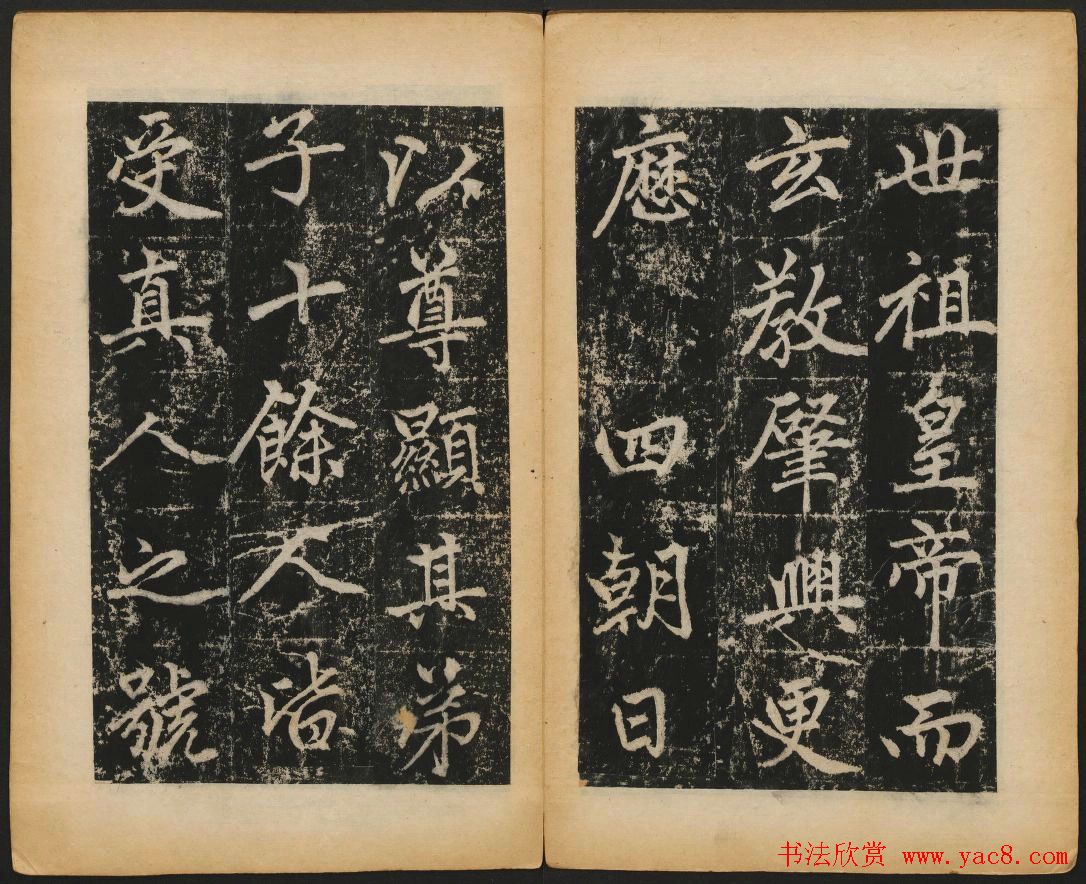 世祖皇帝而
玄教肇興更
歷四朝日
以尊顯其弟
子十餘人皆
受真人之號
书法欣赏 www.yac8.com